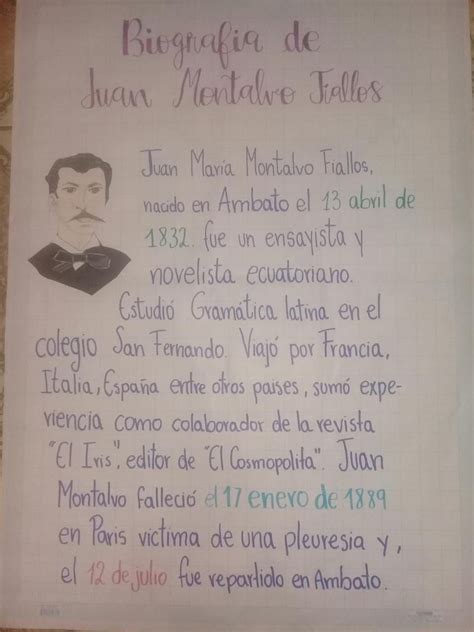 Biografia de
Juan Montalvo Fiallos
Juan María Montalvo Fiallos,
nacido en Ambato el 13 abril de
1832. fue un ensayista y
novelista ecuatoriano.
Estudió Gramática latina en el
colegio San Fernando. Viajó por Francia,
Italia, España entre otros países, sumó expe-
riencia como colaborador de la revista
"El Iris", editor de "El Cosmopolita". Juan
Montalvo falleció el 17 enero de 1889
en Paris víctima de una pleuresia y,
el 12 de julio fue repartido en Ambato.